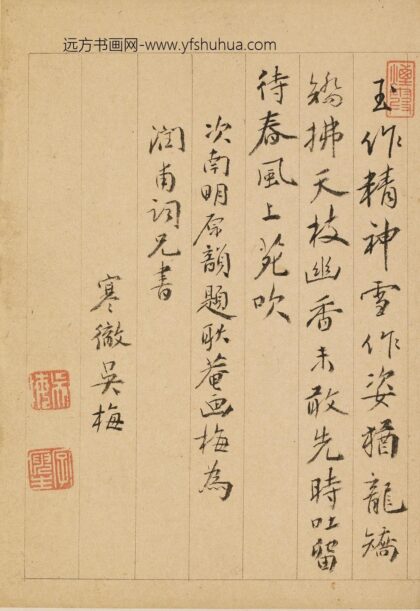 远方书画网-www.yfshuhua.com
玉作精神雪作姿猶龍矯
矯拂天枝幽香未敢先時吐留
待春風上苑吹
次南明原韻題耿菴画梅為
潤甫詞兄書
寒徹吳梅